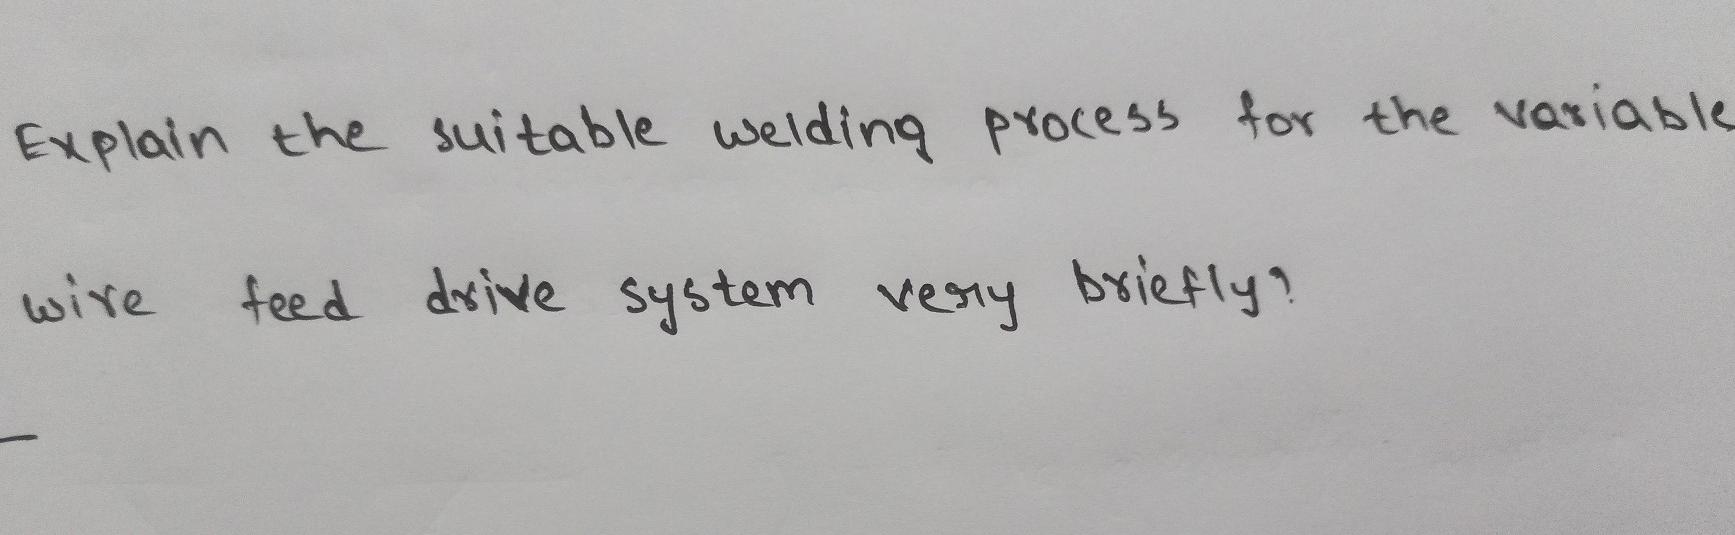 Explain the suitable welding process for the variable
wire feed drive system very briefly?